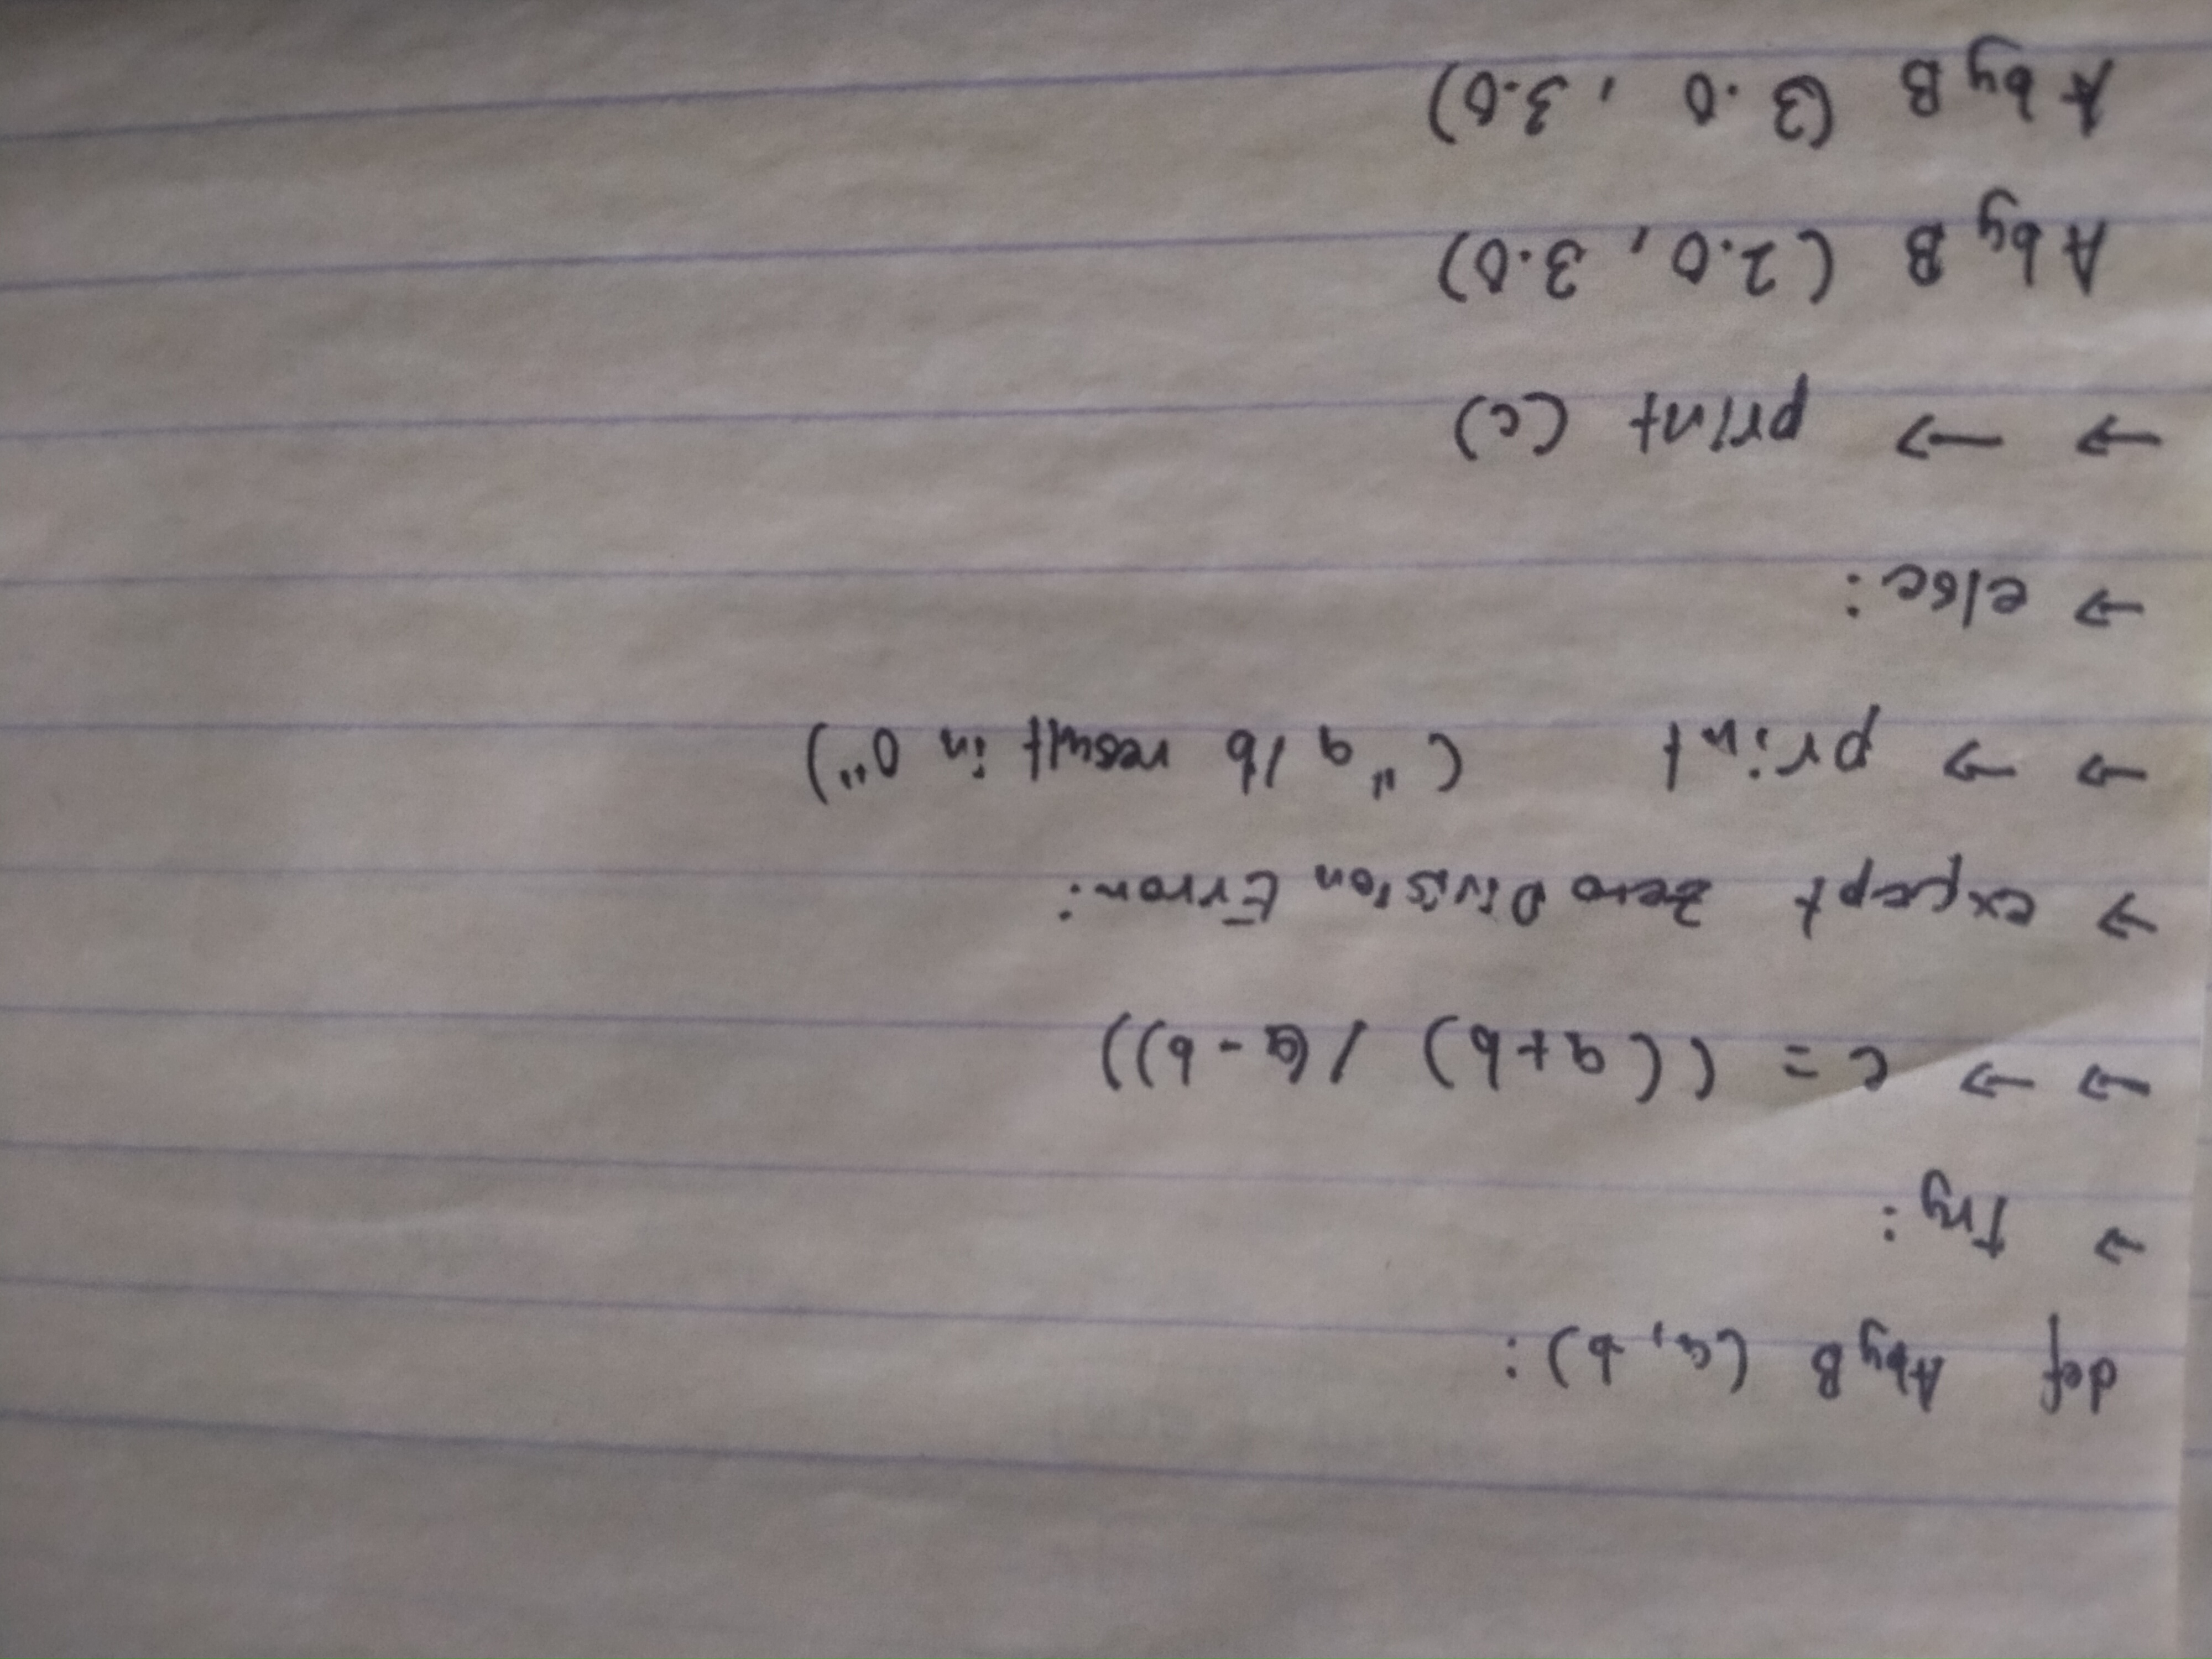 def AbyB (a, b):
→ Try:
→ → c = ((a+b) / (a-b))
→ except Zero Division Error:
→ → print ("a/b result in 0")
→ else:
→ → print (c)
AbyB (2.0, 3.0)
AbyB (3.0, 3.0)